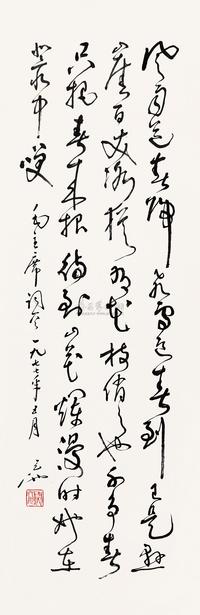 风雨送春归飞雪迎春到已是悬
崖百丈冰犹有花枝俏々也不争春
只把春来报待到山花烂漫时她在
丛中笑 毛主席词 一九七七年五月